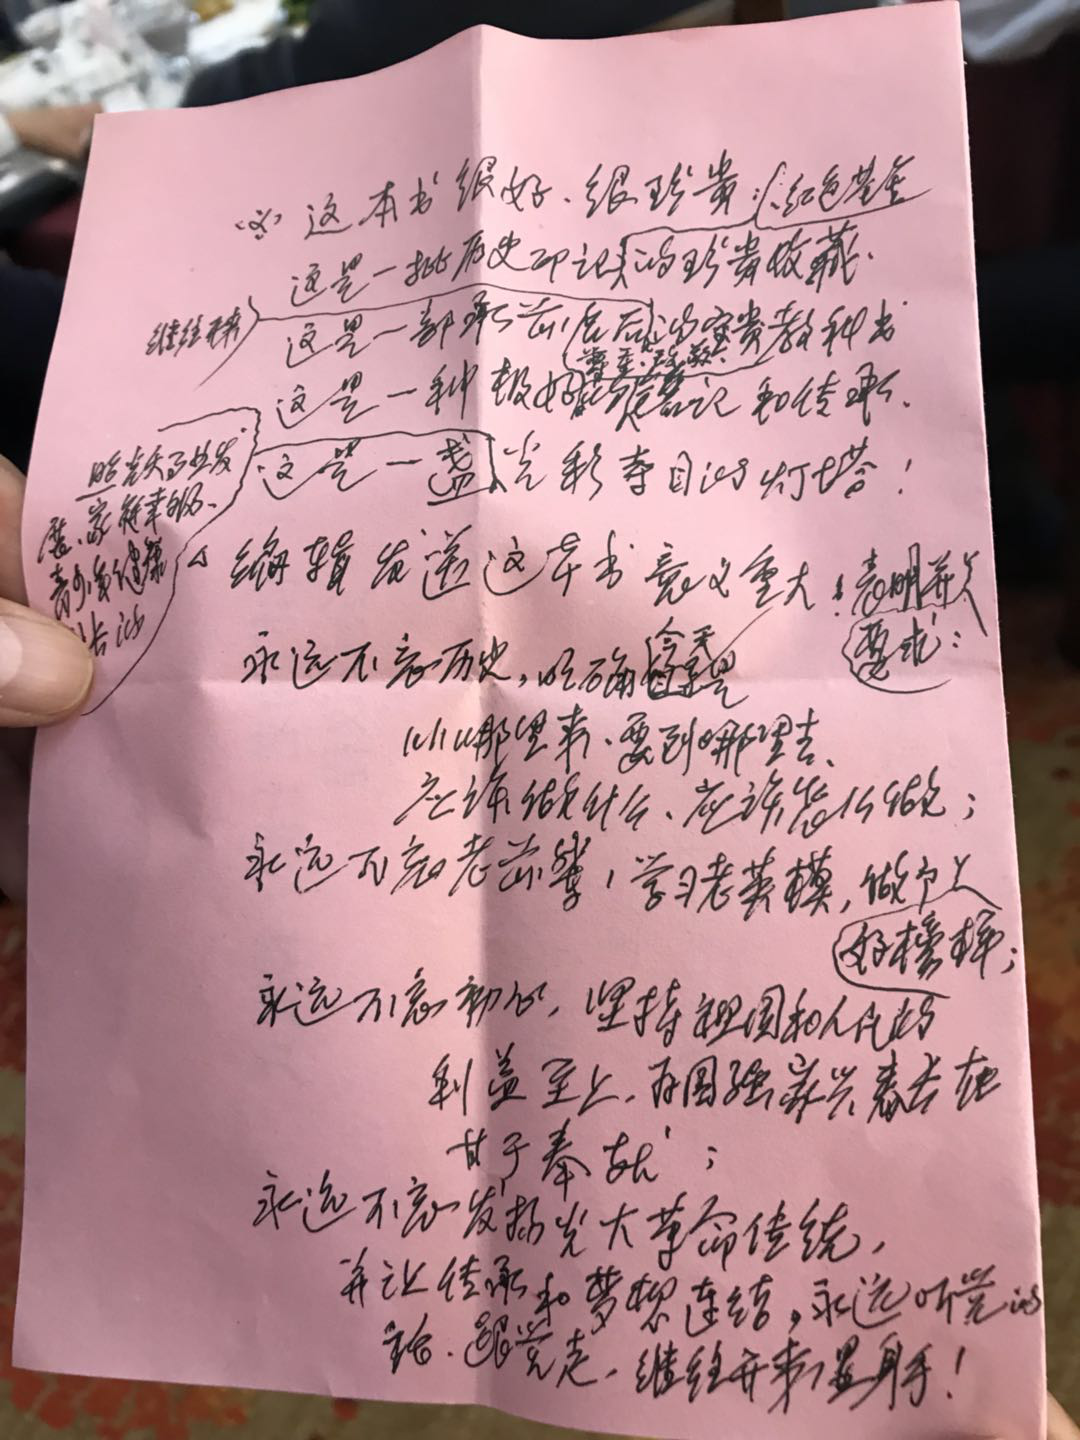 ※ 这本书很好、很珍贵：红色基金
这是一批历史印记的珍贵收藏、
继往开来
这是一部承前启后的宝贵教科书
尊重
这是一种极好的 和传承、
这是一盏光彩夺目的灯塔！
照亮 发
家庭幸福、
健康
长的
编辑发送这本书意义重大！表明并
要求：
永远不忘历史，明确今天是
从那里来、要到哪里去、
应该做什么、应该怎么做；
永远不忘老前辈，学习老英模，做
好榜样；
永远不忘初心，坚持祖国和人民的
利益至上、为国强家兴
甘于奉献；
永远不忘发扬光大革命传统，
并让传承和梦想连结，永远听党的
话、跟党走、继往开来显身手！